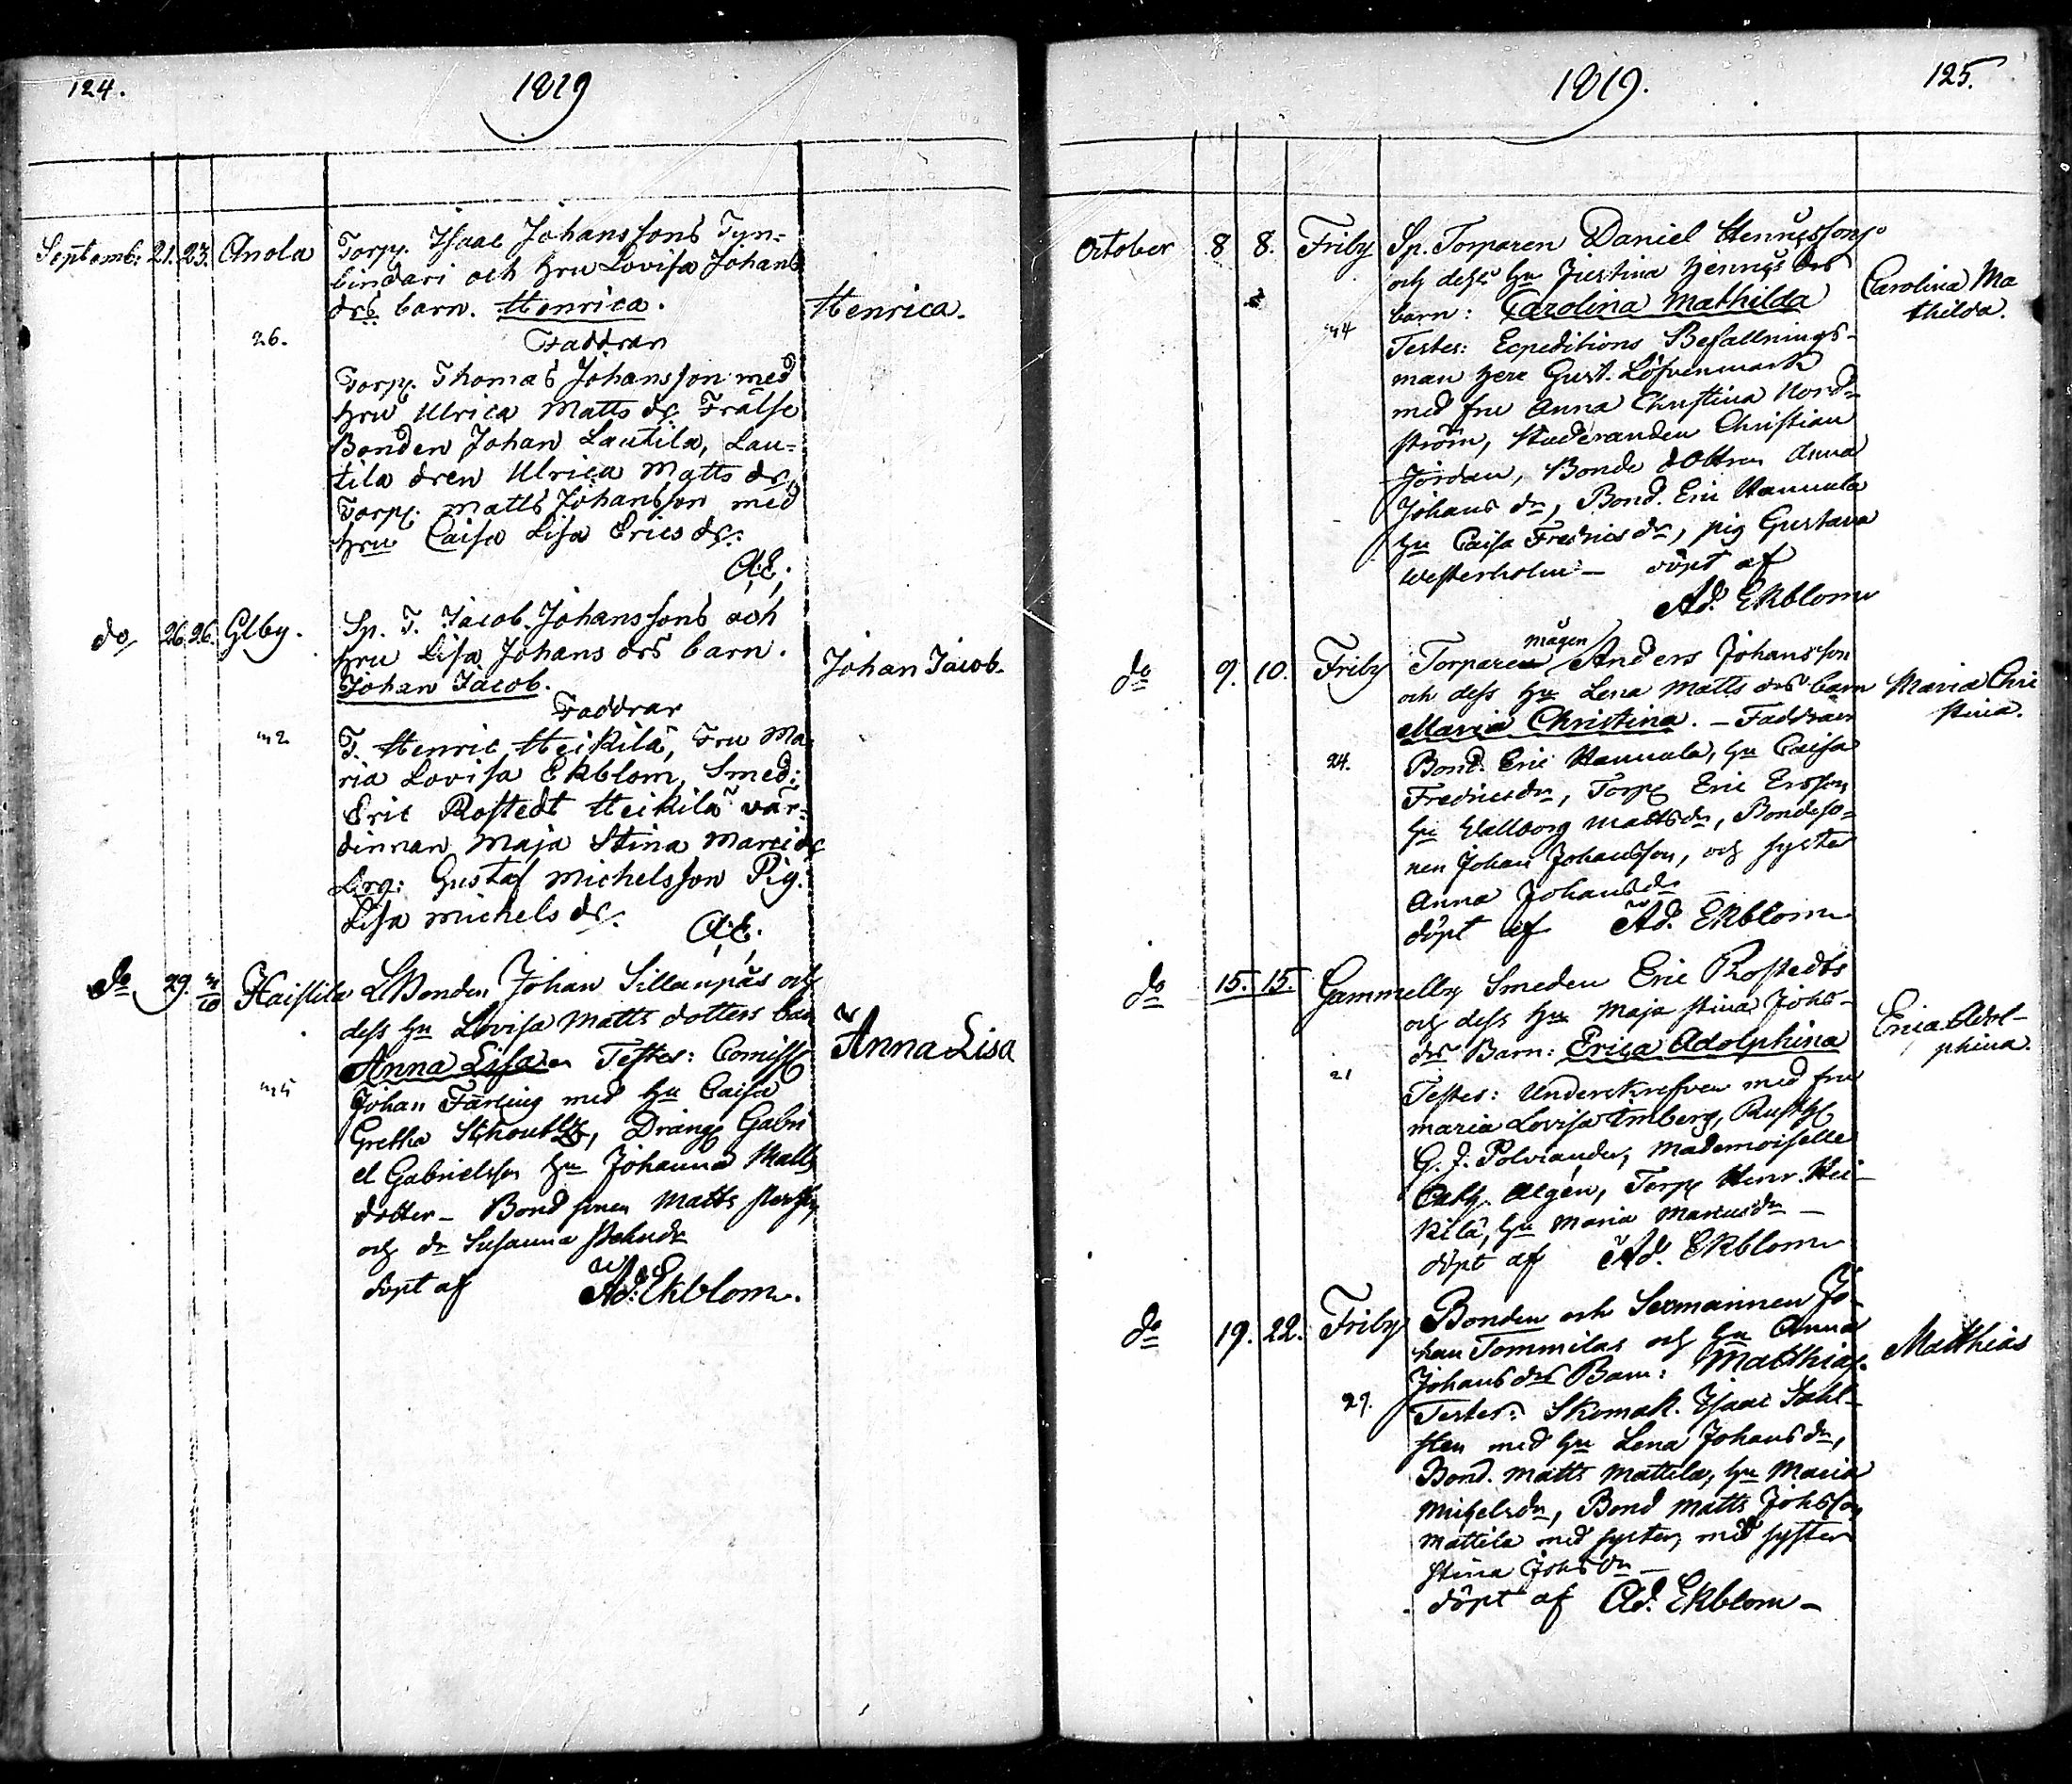 124.
1819
Septemb: 21. 23. Anola
Torp. Isaac Johanssons Tyn=
bindari och hru Lovisa Johans
drs barn. Henrica.
Henrica.
26.
Faddrar
Torp. Thomas Johansson med
hru Ulrica Matts dr. Frälse
Bonden Johan Lautila, Lau=
tila dren Ulrica Matts dr,
Torp. Matts Johansson med
hru Caisa Lisa Erics dr.
A:E:
do 26. 26. Glby.
Sp. T. Jacob Johanssons och
hru Lisa Johans drs barn.
Johan Jacob.
Johan Jacob.
Faddrar
m2
T. Henric Heikilä, Fru Ma
ria Lovisa Ekblom, Smed:
Eric Rostedt Heikilä vär=
dinnan Maja Stina Marci dr
Drg: Gustaf Michelsson Pig.
Lisa Michels dr.
A:E.
do 29. 3/10 Haistila
Bonden Johan Sillanpäs och
dess hu Lovisa Matts dotters bar
Anna Lisa Testes: Comiss
Anna Lisa
m5
Johan Färling med hu Caisa
Gretha, Dräng Gabri
el Gabrielsson hu Johanna Matts
dotter - Bond sonen Matts
och dr Susanna
döpt af Ad: Ekblom.
1819.
125.
October 8 8. Friby
Sp. Torparen Daniel Henricssons
och dess hu Justina Henrics drs
barn: Carolina Mathilda
Carolina Ma
thilda.
m4
Testes: Expeditions Befallnings-
man Herr Gust. Löfvenmark
med fru Anna Christina Nord=
ström, Studeranden Christian
Jordan, Bonde dottren Anna
Johans dr, Bond. Eric Hannula
hu Caisa Fredrics dr, pig Gustava
Westerholm - döpt af
Ad. Ekblom
do 9. 10. Friby
mågen
Torparen Anders Johansson
och dess hu Lena Matts drs barn
Maria Christina. - Faddrar
Maria Chri
stina.
24.
Bond. Eric Hannula, hu Caisa
Fredricsdr, Torp Eric Ersson
hu Wallborg Mattsdr, Bondeso=
nen Johan Johansson, och syster
Anna Johansdr
döpt af Ad. Ekblom
do 15. 15. Gammelby
Smeden Eric Rostedts
och dess hu Maja Stina Johs-
drs Barn: Erica Adolphina
Erica Adol-
phina.
21
Testes: Underskrefven med fru
Maria Lovisa Limberg, Rusth
G. J. Polviander, Mademoiselle
Cath. Algén, Torp Henr. Hei-
kilä, hu Maria Marcusdr -
döpt af Ad. Ekblom
do 19. 22. Friby
Bonden och Sexmannen Jo-
han Tommilas och hu Anna
Johans drs Barn: Matthias.
Matthias
27.
Testes: Skomak. Isaac Sahl-
sten med hu Lena Johansdr,
Bond. Matts Mattila, hu Maria
Michelsdr, Bond Matts Johsson
Mattila med syster, med syster
Stina Johsdr -
döpt af Ad. Ekblom -